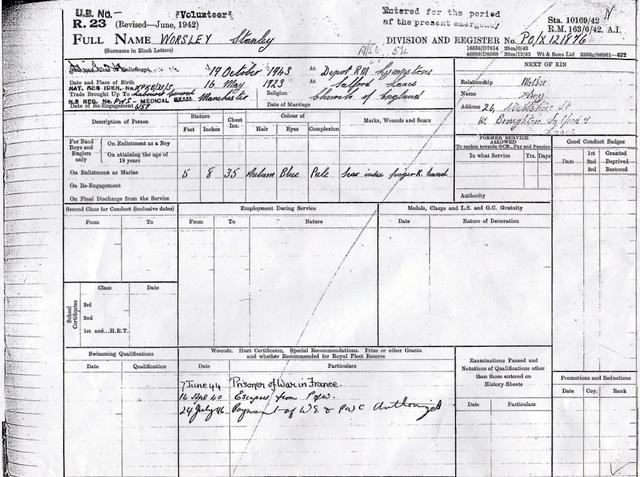 U.B. No.-
"Volunteer"
Entered for the period
of the present emergency
Sta. 10169/42
R.M. 163/6/42. A.I.
R. 23 (Revised—June, 1942)
FULL NAME WORSLEY Stanley
(Surname in Block Letters)
DIVISION AND REGISTER No. PO/X 121876
Wt & Sons Ltd
19 October 1943 At Depot RM Lympstone
Date and Place of Birth 16 May 1923 At Salford Lancs
NAT. REG IDEN. No.
Trade Brought Up To Labourer General Manchester Religion Church of England
MEDICAL EXAM.
Date of Re-Engagement
Date of Marriage
NEXT OF KIN
Relationship Mother
Name Amy
Address 26,
Broughton Salford 7
Lancs
Description of Person
Stature
Feet Inches
Chest Ins.
Colour of
Hair Eyes Complexion
Marks, Wounds and Scars
For Band Boys and Buglers only
On Enlistment as a Boy
On attaining the age of 18 years
On Enlistment as Marine 5 8 35 Auburn Blue Pale Scar index finger R. hand
On Re-Engagement
On Final Discharge from the Service
FORMER SERVICE ALLOWED
In what Service Yrs. Days
Authority
Good Conduct Badges
Date 1st 2nd 3rd Granted Deprived Restored
Second Class for Conduct (inclusive dates)
From To
Employment During Service
From To Nature
Medals, Clasps and L.S. and G.C. Gratuity
Date Nature of Decoration
School Certificates
Class Date
3rd
2nd
1st and...H.E.T.
Swimming Qualifications
Date Qualification
Wounds. Hurt Certificates, Special Recommendations. Prize or other Grants
and whether Recommended for Royal Fleet Reserve
Date Particulars
7 June 44 Prisoner of War in France.
Escaped from
24 July 46 Payment of W.G. & PWC Authorized
Examinations Passed and Notations of Qualifications other than those entered on History Sheets
Date Particulars
Promotions and Reductions
Date Coy. Rank